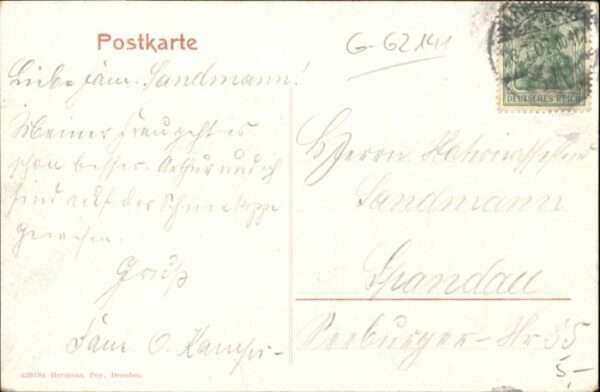 Postkarte
G-62141
DEUTSCHES REICH
Liebe Fam. Sandmann!
Meiner Frau geht es
schon besser. Arthur und ich
sind auf der Schneekoppe
gewesen.
Gruß
Fam. O.
Herrn
Sandmann
Spandau
Seeburger-Str 55
5-
Hermann Poy, Dresden.